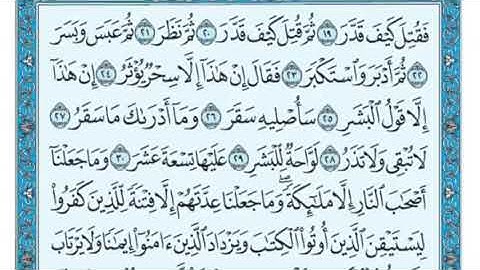 فَقُتِلَ كَيْفَ قَدَّرَ ١٩ ثُمَّ قُتِلَ كَيْفَ قَدَّرَ ٢٠ ثُمَّ نَظَرَ ٢١ ثُمَّ عَبَسَ وَبَسَرَ
٢٢ ثُمَّ أَدْبَرَ وَٱسْتَكْبَرَ ٢٣ فَقَالَ إِنْ هَٰذَآ إِلَّا سِحْرٌ يُؤْثَرُ ٢٤ إِنْ هَٰذَآ
إِلَّا قَوْلُ ٱلْبَشَرِ ٢٥ سَأُصْلِيهِ سَقَرَ ٢٦ وَمَآ أَدْرَىٰكَ مَا سَقَرُ ٢٧
لَا تُبْقِى وَلَا تَذَرُ ٢٨ لَوَّاحَةٌ لِّلْبَشَرِ ٢٩ عَلَيْهَا تِسْعَةَ عَشَرَ ٣٠ وَمَا جَعَلْنَآ
أَصْحَٰبَ ٱلنَّارِ إِلَّا مَلَٰٓئِكَةً ۙ وَمَا جَعَلْنَا عِدَّتَهُمْ إِلَّا فِتْنَةً لِّلَّذِينَ كَفَرُوا۟
لِيَسْتَيْقِنَ ٱلَّذِينَ أُوتُوا۟ ٱلْكِتَٰبَ وَيَزْدَادَ ٱلَّذِينَ ءَامَنُوٓا۟ إِيمَٰنًا ۙ وَلَا يَرْتَابَ